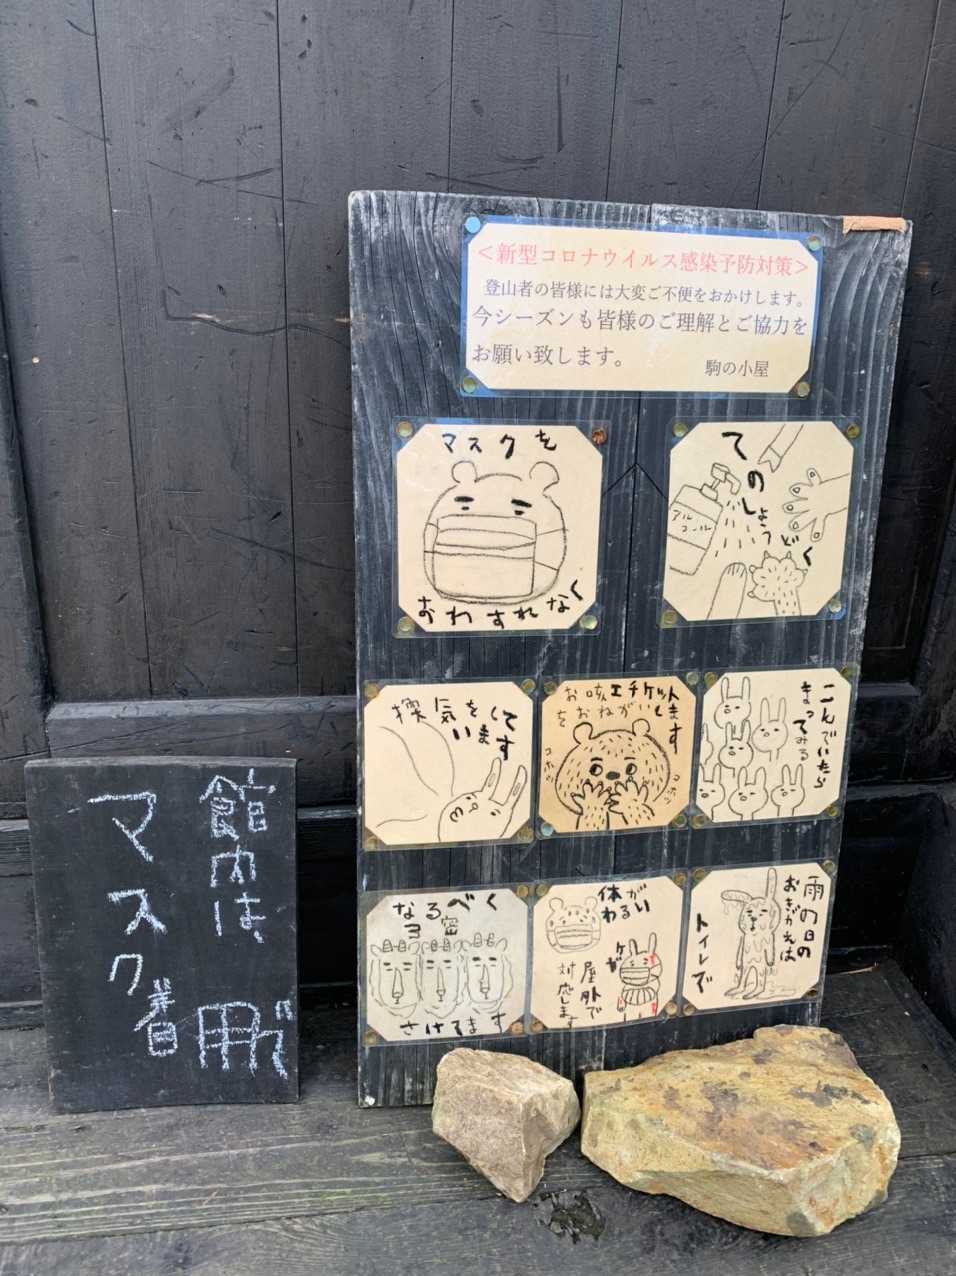 <新型コロナウイルス感染予防対策>
登山者の皆様には大変ご不便をおかけします。
今シーズンも皆様のご理解とご協力を
お願い致します。
駒の小屋
マスクを
おわすれなく
てのしょうどく
アルコール
換気をして
います
お咳エチケット
をおねがいします
コホン
コホン
こんでいたら
まってみる
なるべく
3密
さけてます
体が
わるい
ケガ
屋外で
対応します
雨の日の
おきがえは
トイレで
館内は、
マスク着用で